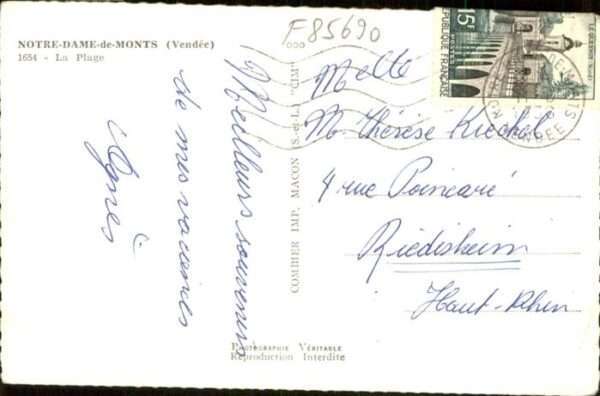 F85690
NOTRE-DAME-de-MONTS (Vendée)
1654 - La Plage
Meilleurs souvenirs
de mes vacances
Agnès
COMBIER IMP. MACON (S.-et-L.) "CIM"
15F
REPUBLIQUE FRANÇAISE
POSTES
Melle
M. Thérèse
4 rue Poincaré
Riedisheim
Haut-Rhin
PHOTOGRAPHIE VÉRITABLE
Reproduction Interdite